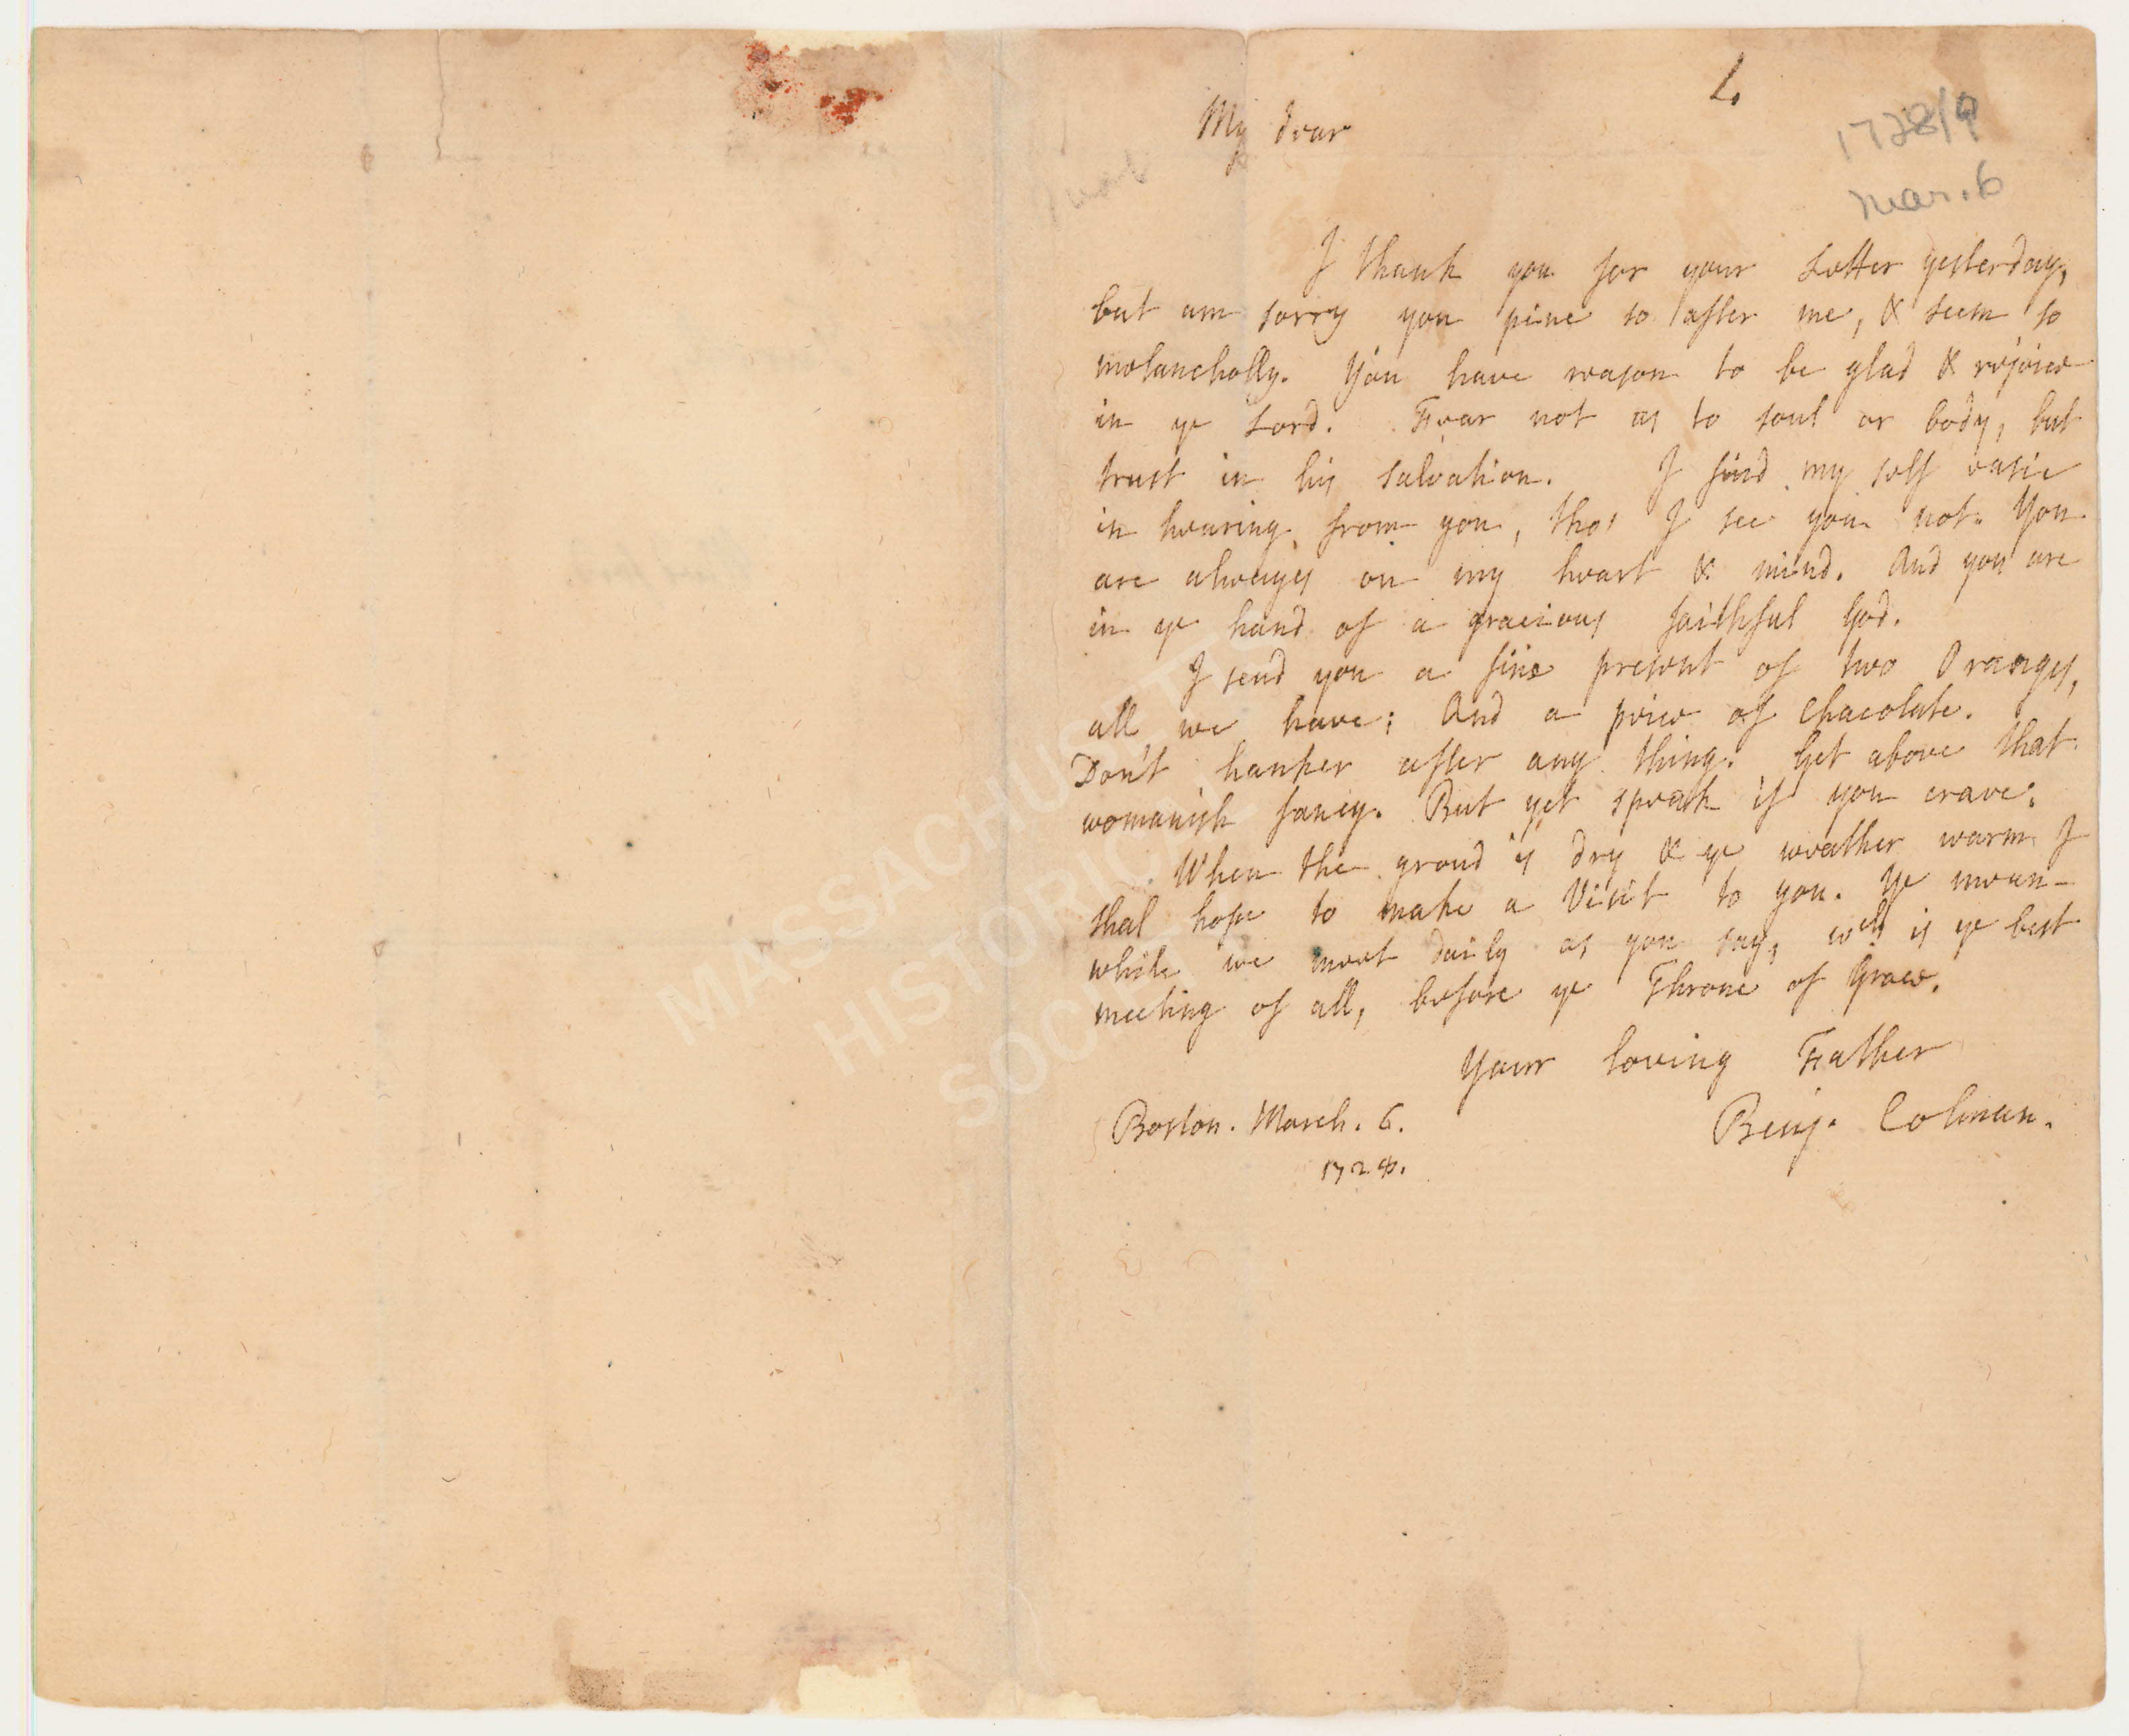 L.
1728/9
Mar. 6
My dear
I thank you for your Letter yesterday,
but am sorry you pine so after me, & seem so
melancholly. You have reason to be glad & rejoice
in ye Lord. Fear not as to soul or body, but
trust in his salvation. I find my self easie
in hearing from you, tho' I see you not. You
are always on my heart & mind. And you are
in ye hand of a gracious faithful God.
I send you a fine present of two Oranges,
all we have; And a peice of Chacolate.
Don't hanker after any thing. Get above that
womanish fancy. But yet speak if you crave.
When the groud is dry & ye weather warm I
shal hope to make a Visit to you. Ye mean-
while we meet daily as you say, wch is ye best
meeting of all, before ye Throne of Grace.
Your loving Father
Benj. Colman.
Boston. March. 6.
172
MASSACHUSETTS
HISTORICAL
SOCIETY